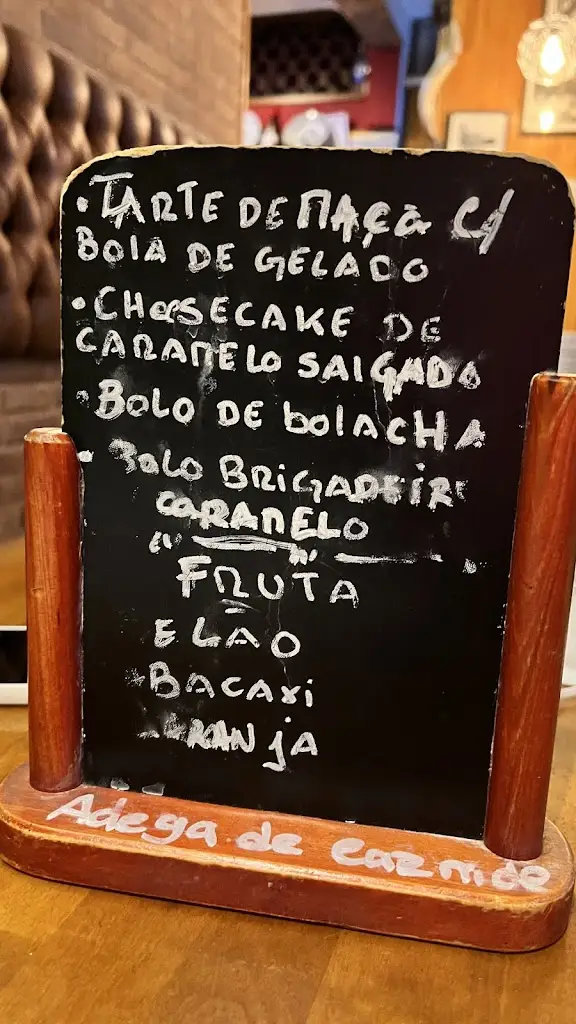 • TARTE DE MAÇÃ C/
BOLA DE GELADO
• CHEESECAKE DE
CARAMELO SALGADO
• BOLO DE bolACHA
• BOLO BRIGADEIRO
CARAMELO
FRUTA
ELAO
BACAXI
ARANjA
Adega de